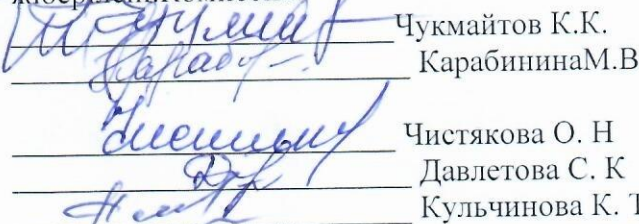 Чукмайтов К.К.
КарабининаМ.В
Чистякова О. Н
Давлетова С. К
Кульчинова К. Т